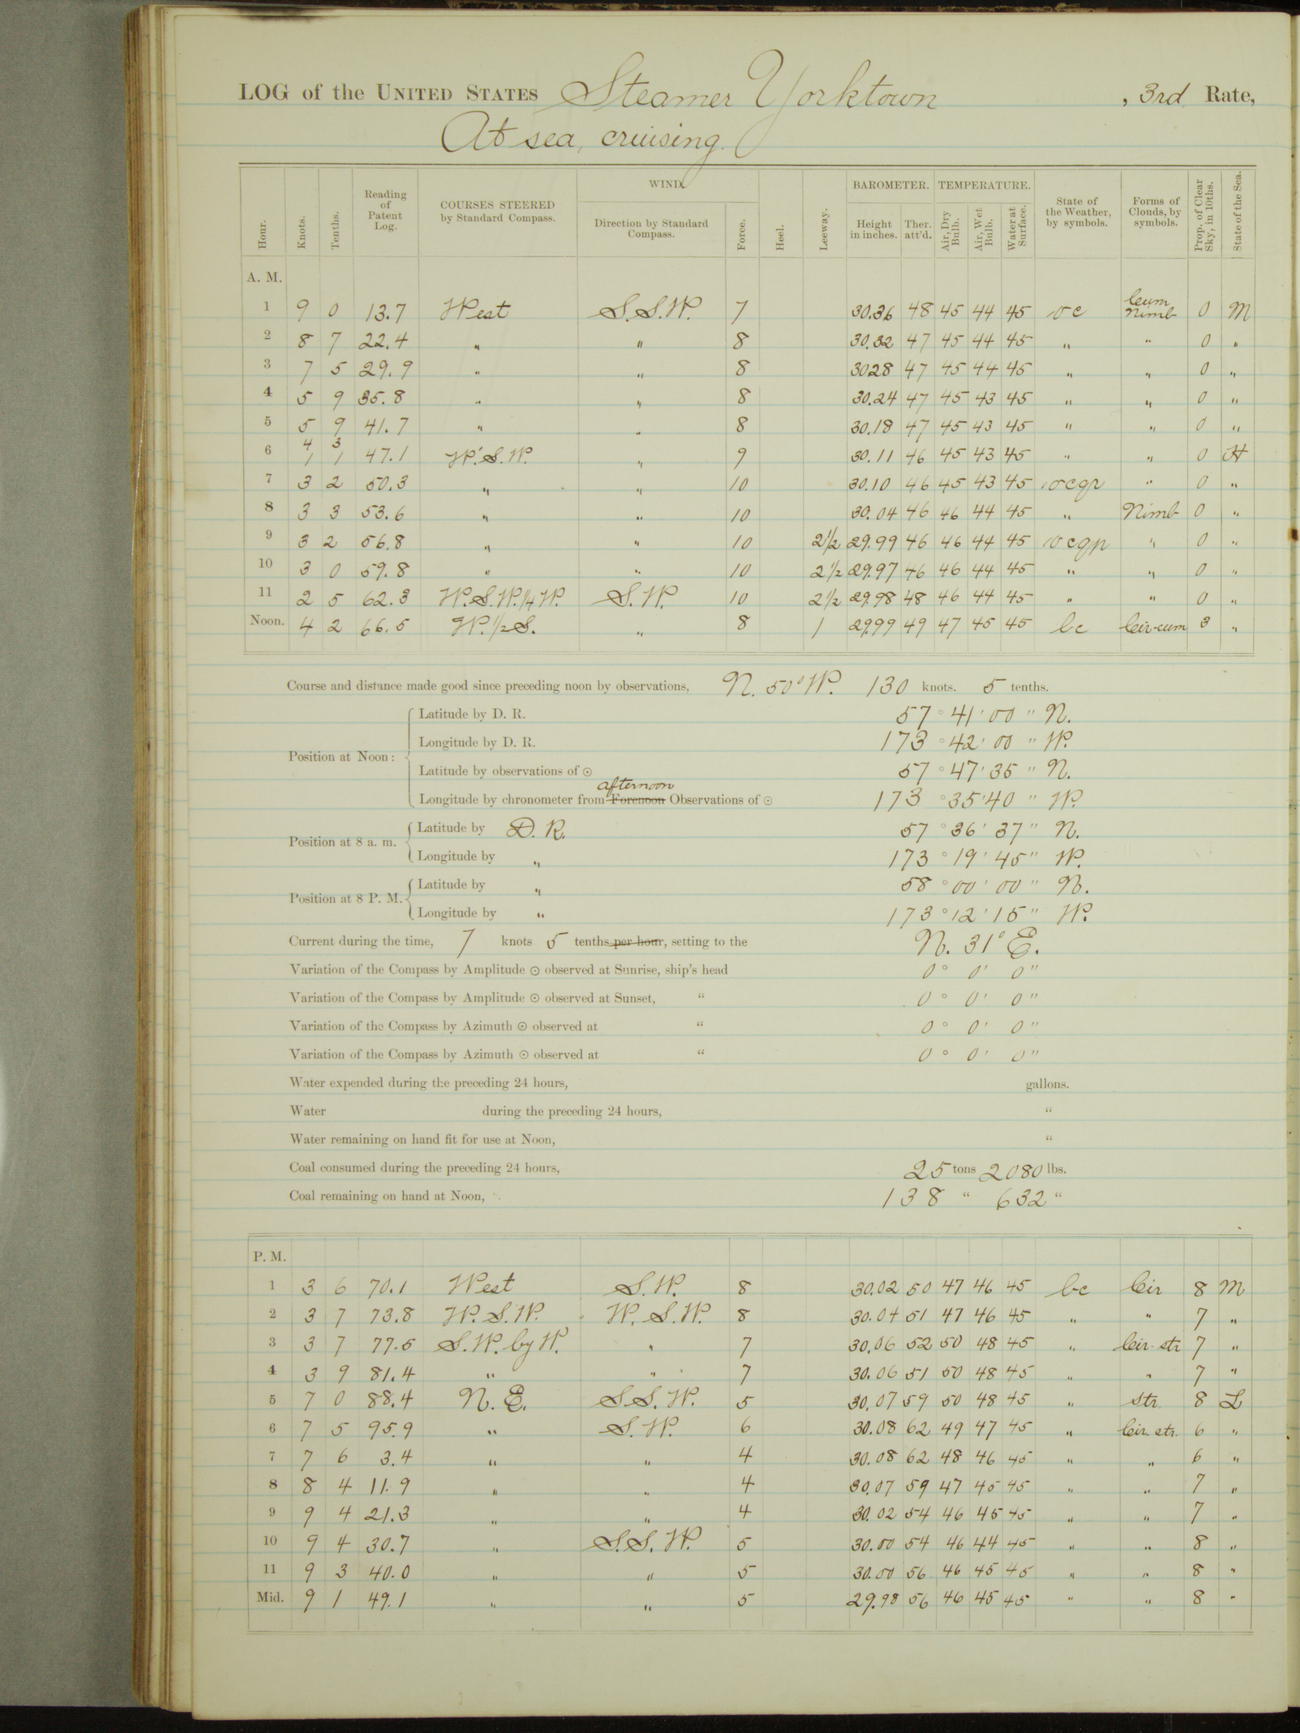 LOG of the UNITED STATES Steamer Yorktown, 3rd Rate,
At sea, cruising.
Hour. Knots. Tenths. Reading of Patent Log. COURSES STEERED by Standard Compass. WIND. Direction by Standard Compass. Force. Heel. Leeway. BAROMETER. Height in inches. Ther. att'd. TEMPERATURE. Air, Dry Bulb. Air, Wet Bulb. Water at Surface. State of the Weather, by symbols. Forms of Clouds, by symbols. Prop. of Clear Sky, in 10ths. State of the Sea.
A. M.
1 9 0 13.7 West S.S.W. 7 30.36 48 45 44 45 oc Cum Nimb 0 M
2 8 7 22.4 " " 8 30.32 47 45 44 45 " " 0 "
3 7 5 29.9 " " 8 3028 47 45 44 45 " " 0 "
4 5 9 35.8 " " 8 30.24 47 45 43 45 " " 0 "
5 5 9 41.7 " " 8 30.18 47 45 43 45 " " 0 "
6 4 1 3 1 47.1 W.S.W. " 9 30.11 46 45 43 45 " " 0 H
7 3 2 50.3 " " 10 30.10 46 45 43 45 ocqr " 0 "
8 3 3 53.6 " " 10 30.04 46 46 44 45 " Nimb 0 "
9 3 2 56.8 " " 10 2½ 29.99 46 46 44 45 ocqp " 0 "
10 3 0 59.8 " " 10 2½ 29.97 46 46 44 45 " " 0 "
11 2 5 62.3 W.S.W.¼W. S.W. 10 2½ 29.98 48 46 44 45 " " 0 "
Noon. 4 2 66.5 W.½S. " 8 1 29.99 49 47 45 45 bc Cir-cum 3 "
Course and distance made good since preceding noon by observations, N. 50° W. 130 knots. 5 tenths.
Position at Noon:
Latitude by D. R. 57° 41' 00" N.
Longitude by D. R. 173° 42' 00" W.
Latitude by observations of ☉ 57° 47' 35" N.
afternoon
Longitude by chronometer from Forenoon Observations of ☉ 173° 35' 40" W.
Position at 8 a. m.
Latitude by D. R. 57° 36' 37" N.
Longitude by " 173° 19' 45" W.
Position at 8 P. M.
Latitude by " 58° 00' 00" N.
Longitude by " 173° 12' 15" W.
Current during the time, 7 knots 5 tenths per hour, setting to the N. 31° E.
Variation of the Compass by Amplitude ☉ observed at Sunrise, ship's head 0° 0' 0"
Variation of the Compass by Amplitude ☉ observed at Sunset, " 0° 0' 0"
Variation of the Compass by Azimuth ☉ observed at " 0° 0' 0"
Variation of the Compass by Azimuth ☉ observed at " 0° 0' 0"
Water expended during the preceding 24 hours, gallons.
Water during the preceding 24 hours, "
Water remaining on hand fit for use at Noon, "
Coal consumed during the preceding 24 hours, 25 tons 2080 lbs.
Coal remaining on hand at Noon, 138 " 632 "
P. M.
1 3 6 70.1 West S.W. 8 30.02 50 47 46 45 bc Cir 8 M
2 3 7 73.8 W.S.W. W.S.W. 8 30.04 51 47 46 45 " " 7 "
3 3 7 77.5 S.W. by W. " 7 30.06 52 50 48 45 " Cir-str 7 "
4 3 9 81.4 " " 7 30.06 51 50 48 45 " " 7 "
5 7 0 88.4 N.E. S.S.W. 5 30.07 59 50 48 45 " Str. 8 L
6 7 5 95.9 " S.W. 6 30.08 62 49 47 45 " Cir. str. 6 "
7 7 6 3.4 " " 4 30.08 62 48 46 45 " " 6 "
8 8 4 11.9 " " 4 30.07 59 47 45 45 " " 7 "
9 9 4 21.3 " " 4 30.02 54 46 45 45 " " 7 "
10 9 4 30.7 " S.S.W. 5 30.00 54 46 44 45 " " 8 "
11 9 3 40.0 " " 5 30.00 56 46 45 45 " " 8 "
Mid. 9 1 49.1 " " 5 29.98 56 46 45 45 " " 8 "